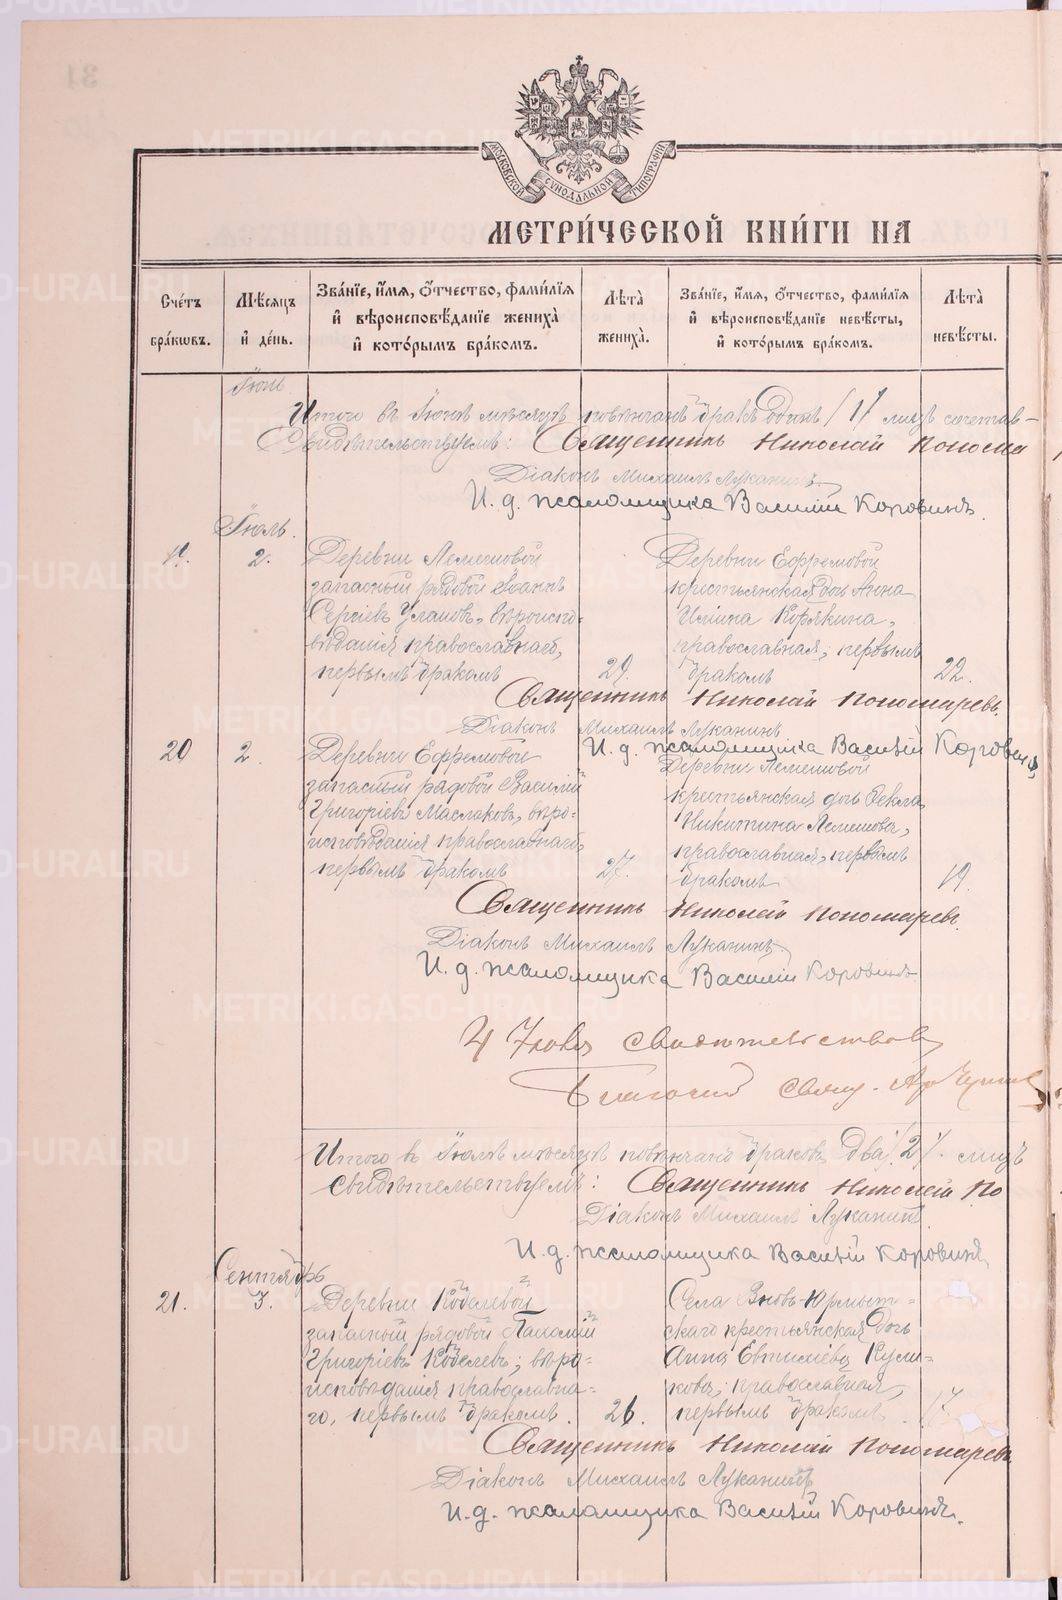 МОСКОВСКОЙ СУНОДАЛЬНОЙ ТИПОГРАФІИ
МЕТРИ́ЧЕСКОЙ КНИ́ГИ НА
Сче́тъ бра́кѡвъ.
Мѣ́сяцъ и҆ де́нь.
Зва́нїе, и҆́мя, ѻ҆́тчество, фами́лїя и҆ вѣроисповѣ́данїе жениха̀ и҆ кото́рымъ бра́комъ.
Лѣ́та жениха̀.
Зва́нїе, и҆́мя, ѻ҆́тчество, фами́лїя и҆ вѣроисповѣ́данїе невѣ́сты, и҆ кото́рымъ бра́комъ.
Лѣ́та невѣ́сты.
Іюнь
Итого въ Іюнѣ мѣсяцѣ повѣнчанъ бракъ одинъ /1/ лицъ сочетав-
Свидѣтельствуемъ: Священникъ Николай Понома
Діаконъ Михаилъ Луканинъ
И. д. псаломщика Василій Коровинъ.
Іюль.
19.
2.
Деревни Лемешовой
запасный рядовой Іоаннъ
Сергіевъ Улановъ, вѣроиспо-
вѣданія православнаго,
первымъ бракомъ
29.
Деревни Ефремовой
крестьянская дочь Анна
Ильина Корякина,
православная, первымъ
бракомъ
22.
Священникъ Николай Пономаревъ.
Діаконъ Михаилъ Луканинъ
И. д. псаломщика Василій Коровинъ
20
2.
Деревни Ефремовой
запасный рядовой Василій
Григоріевъ Маслаковъ, вѣро-
исповѣданія православнаго,
первымъ бракомъ
27.
Деревни Лемешовой
крестьянская дочь Фекла
Никитина Лемешова,
православная, первымъ
бракомъ
19.
Священникъ Николай Пономаревъ.
Діаконъ Михаилъ Луканинъ.
И. д. псаломщика Василій Коровинъ
свидѣтельствов
Благочин свящ.
Итого въ Іюлѣ мѣсяцѣ повѣнчано браковъ два /2/. лицъ
свидѣтельствуемъ: Священникъ Николай По
Діаконъ Михаилъ Луканинъ.
И. д. псаломщика Василій Коровинъ
Сентябрь
21.
3.
Деревни Кобелевой
запасный рядовой Пахомій
Григоріевъ Кобелевъ; вѣро-
исповѣданія православна-
го, первымъ бракомъ.
26.
Села Вновь-Юрмыт-
скаго крестьянская дочь
Анна Евтихіева Кули-
кова, православная,
первымъ бракомъ
17
Священникъ Николай Пономаревъ
Діаконъ Михаилъ Луканинъ
И. д. псаломщика Василій Коровинъ.
METRIKI.GASO-URAL.RU